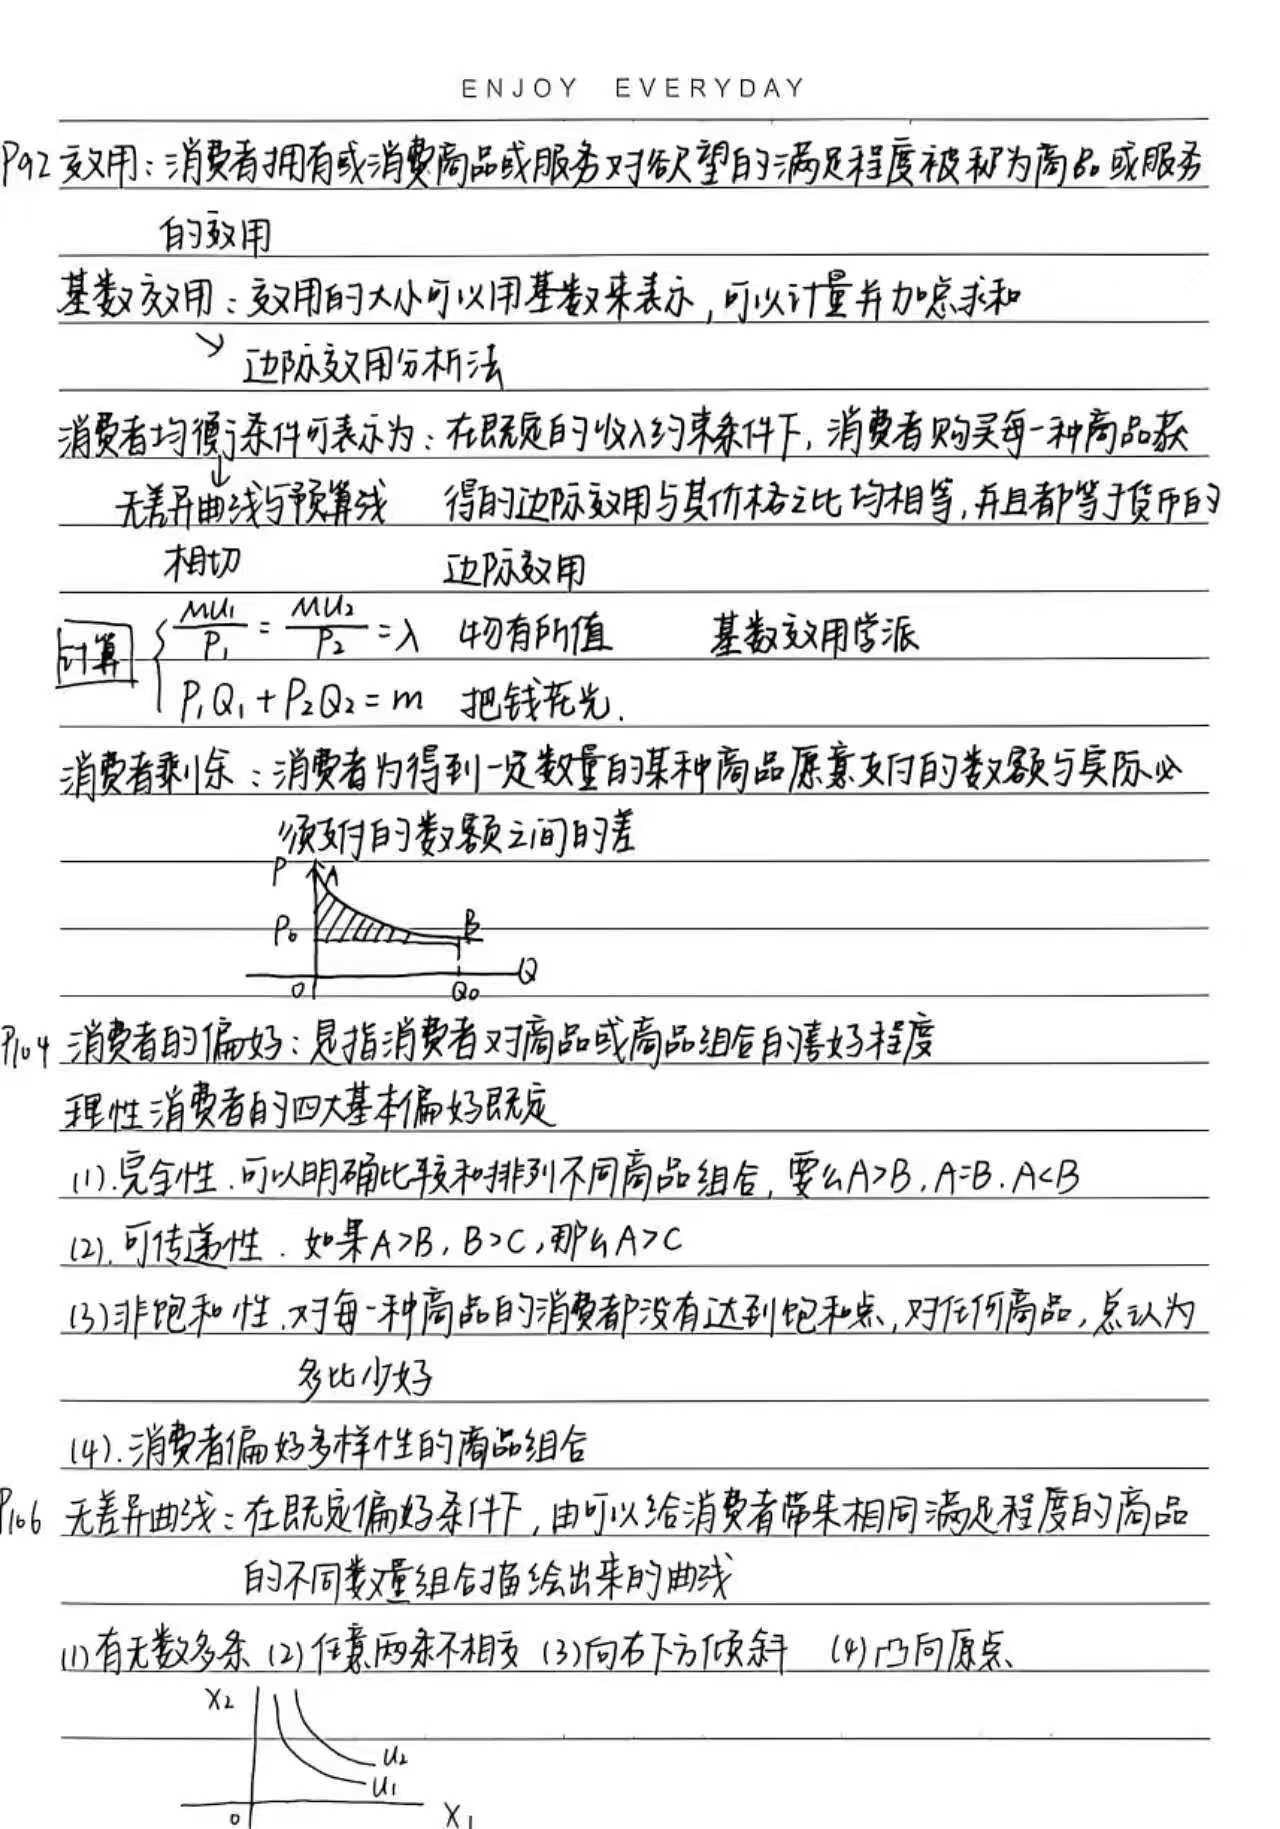 ENJOY EVERYDAY
P92 效用：消费者拥有或消费商品或服务对欲望的满足程度被称为商品或服务
的效用
基数效用：效用的大小可以用基数来表示，可以计量并加总求和
↘ 边际效用分析法
消费者均衡条件可表示为：在既定的收入约束条件下，消费者购买每一种商品获
↓
无差异曲线与预算线 得的边际效用与其价格之比均相等，并且都等于货币的
相切 边际效用
计算 { MU₁/P₁ = MU₂/P₂ = λ 物有所值 基数效用学派
P₁Q₁ + P₂Q₂ = m 把钱花光.
消费者剩余：消费者为得到一定数量的某种商品愿意支付的数额与实际必
须支付的数额之间的差
P A
P₀ B
Q
0 Q₀
P104 消费者的偏好：是指消费者对商品或商品组合的喜好程度
理性消费者的四大基本偏好既定
(1).完全性.可以明确比较和排列不同商品组合，要么A>B,A=B.A<B
(2).可传递性.如果A>B,B>C,那么A>C
(3)非饱和性.对每一种商品的消费都没有达到饱和点,对任何商品,总认为
多比少好
(4).消费者偏好多样性的商品组合
P106 无差异曲线：在既定偏好条件下，由可以给消费者带来相同满足程度的商品
的不同数量组合描绘出来的曲线
(1)有无数多条 (2)任意两条不相交 (3)向右下方倾斜 (4)凸向原点
X₂
U₂
U₁
0 X₁